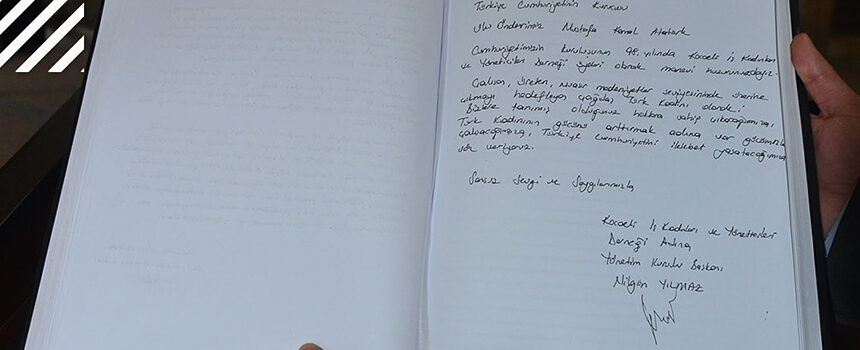 Türkiye Cumhuriyetinin Kurucusu
Ulu Önderimiz Mustafa Kemal Atatürk
Cumhuriyetimizin kuruluşunun 98. yılında Kocaeli İş Kadınları
ve Yöneticileri Derneği üyeleri olarak manevi huzurunuzdayız.
Çalışan, üreten, muasır medeniyetler seviyesinin de üzerine
çıkmayı hedefleyen çağdaş Türk Kadını olarak..
Bizlere tanımış olduğunuz haklara sahip çıkacağımıza,
Türk Kadınının gücünü arttırmak adına var gücümüzle
çalışacağımıza, Türkiye Cumhuriyetini ilelebet yaşatacağımıza
söz veriyoruz.
Sonsuz Sevgi ve Saygılarımızla
Kocaeli İş Kadınları ve Yöneticileri
Derneği Adına
Yönetim Kurulu Başkanı
Nilgün YILMAZ